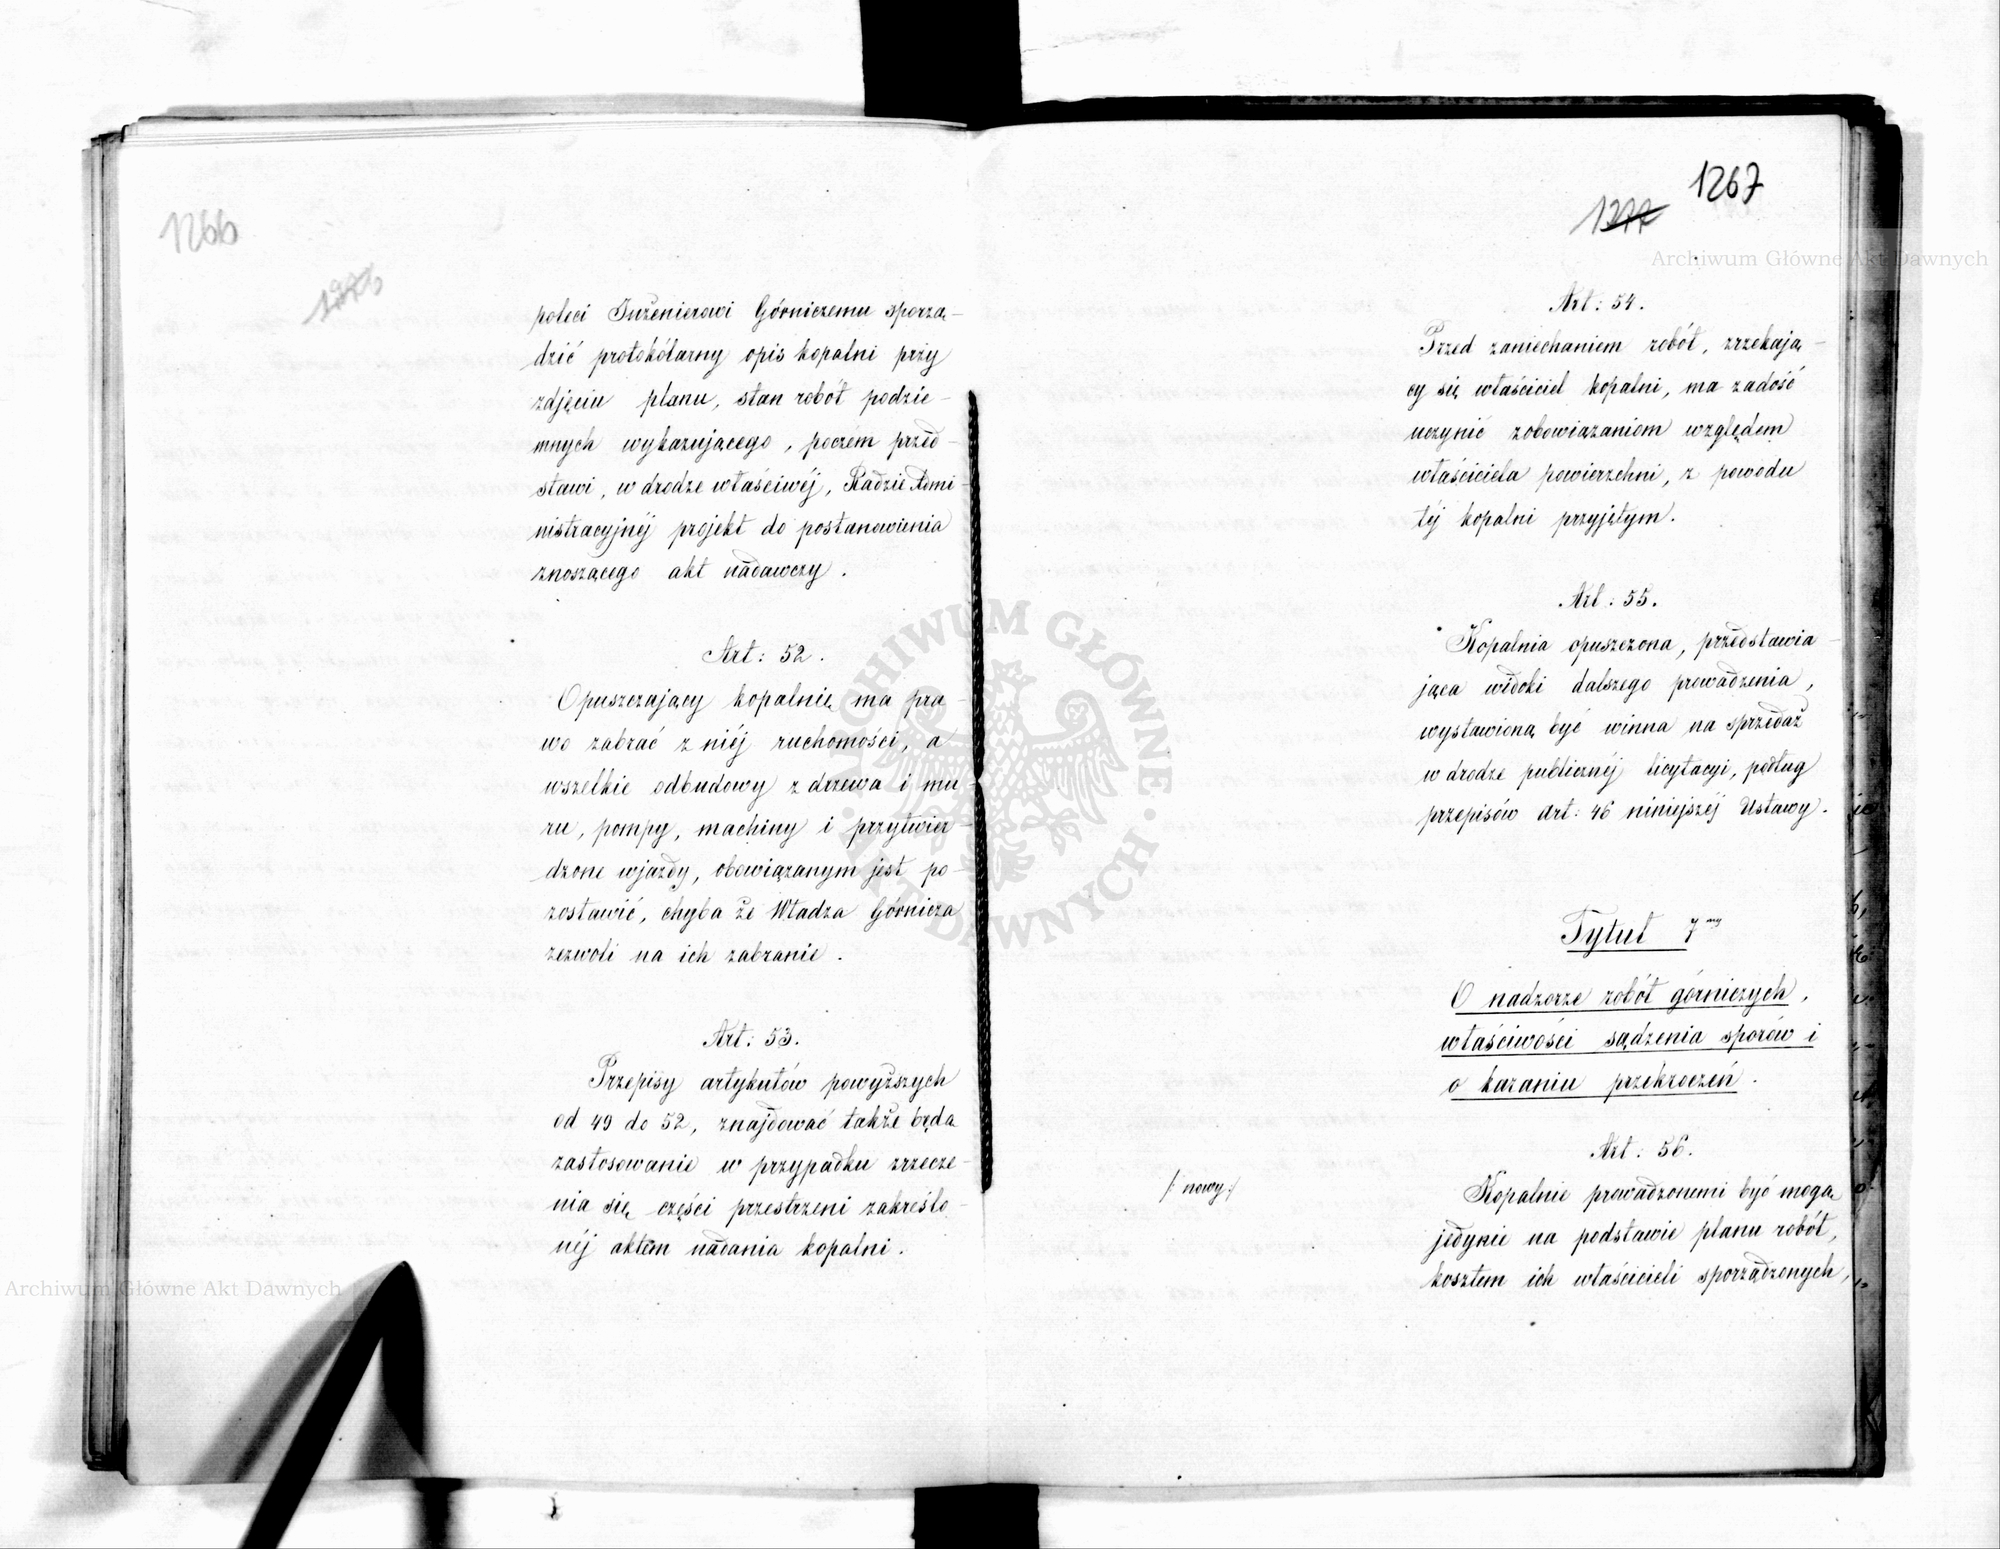 1266
poleci Inżenierowi Górniczemu sporzą-
dzić protokólarny opis kopalni przy
zdjęciu planu, stan robót podzie-
mnych wykazującego, poczém przed-
stawi, w drodze właściwéj, Radzie Admi-
nistracyjnéj projekt do postanowienia
znoszącego akt nadawczy.
Art: 52.
Opuszczający kopalnię ma pra-
wo zabrać z niéj ruchomości, a
wszelkie odbudowy z drzewa i mu-
ru, pompy, machiny i przytwier-
dzone wjazdy, obowiązanym jest po-
zostawić, chyba że Władza Górnicza
zezwoli na ich zabranie.
Art: 53.
Przepisy artykułów powyższych
od 49 do 52, znajdować także będą
zastosowanie w przypadku zrzecze-
nia się części przestrzeni zakreślo-
néj aktem nadania kopalni.
1267
Art: 54.
Przed zaniechaniem robót, zrzekają-
cy się właściciel kopalni, ma zadość
uczynić zobowiązaniom względem
właściciela powierzchni, z powodu
téj kopalni przyjętym.
Art: 55.
Kopalnia opuszczona, przedstawia-
jąca widoki dalszego prowadzenia,
wystawioną być winna na sprzedaż
w drodze publicznéj licytacyi, podług
przepisów Art: 46 niniejszéj Ustawy.
Tytuł 7my
O nadzorze robót górniczych,
właściwości sądzenia sporów i
o karaniu przekroczeń.
Art: 56.
/: nowy :/
Kopalnie prowadzonemi być mogą
jedynie na podstawie planu robót,
kosztem ich właścicieli sporządzonych,
Archiwum Główne Akt Dawnych
Archiwum Główne Akt Dawnych
ARCHIWUM GŁÓWNE AKT DAWNYCH